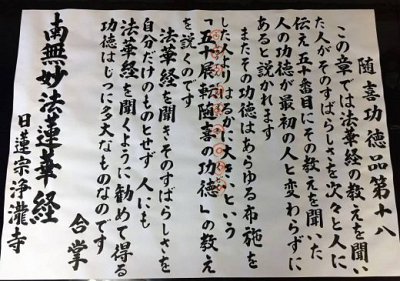 随喜功徳品第十八
この章では法華経の教えを聞い
た人がそのすばらしさを次々と人に
伝え五十番目にその教えを聞いた
人の功徳が最初の人と変わらずに
あると説かれます
またその功徳はあらゆる布施を
した人よりはるかに大きいという
「五十展転随喜の功徳」の教え
を説くのです
法華経を聞きそのすばらしさを
自分だけのものとせず人にも
法華経を聞くように勧めて得る
功徳はじつに多大なものなのです
合掌
南無妙法蓮華経
日蓮宗浄瀧寺